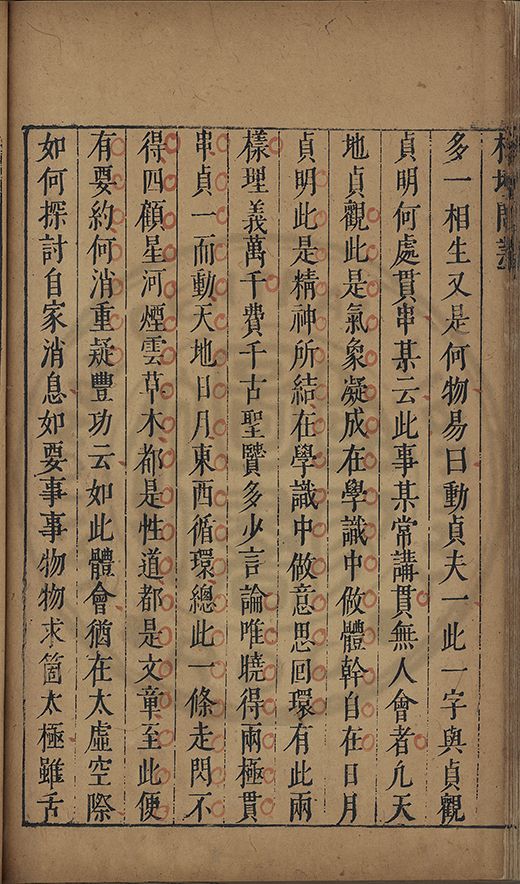 榕壇問業
多一相生又是何物易曰動貞夫一此一字與貞觀
貞明何處貫串某云此事某常講貫無人會者凡天
地貞觀此是氣象凝成在學識中做體幹自在日月
貞明此是精神所結在學識中做意思回環有此兩
樣理義萬千費千古聖賢多少言論唯曉得兩極貫
串貞一而動天地日月東西循環總此一條走閃不
得四顧星河煙雲草木都是性道都是文章至此便
有要約何消重疑豐功云如此體會猶在太虛空際
如何探討自家消息如要事事物物求箇太極雖舌